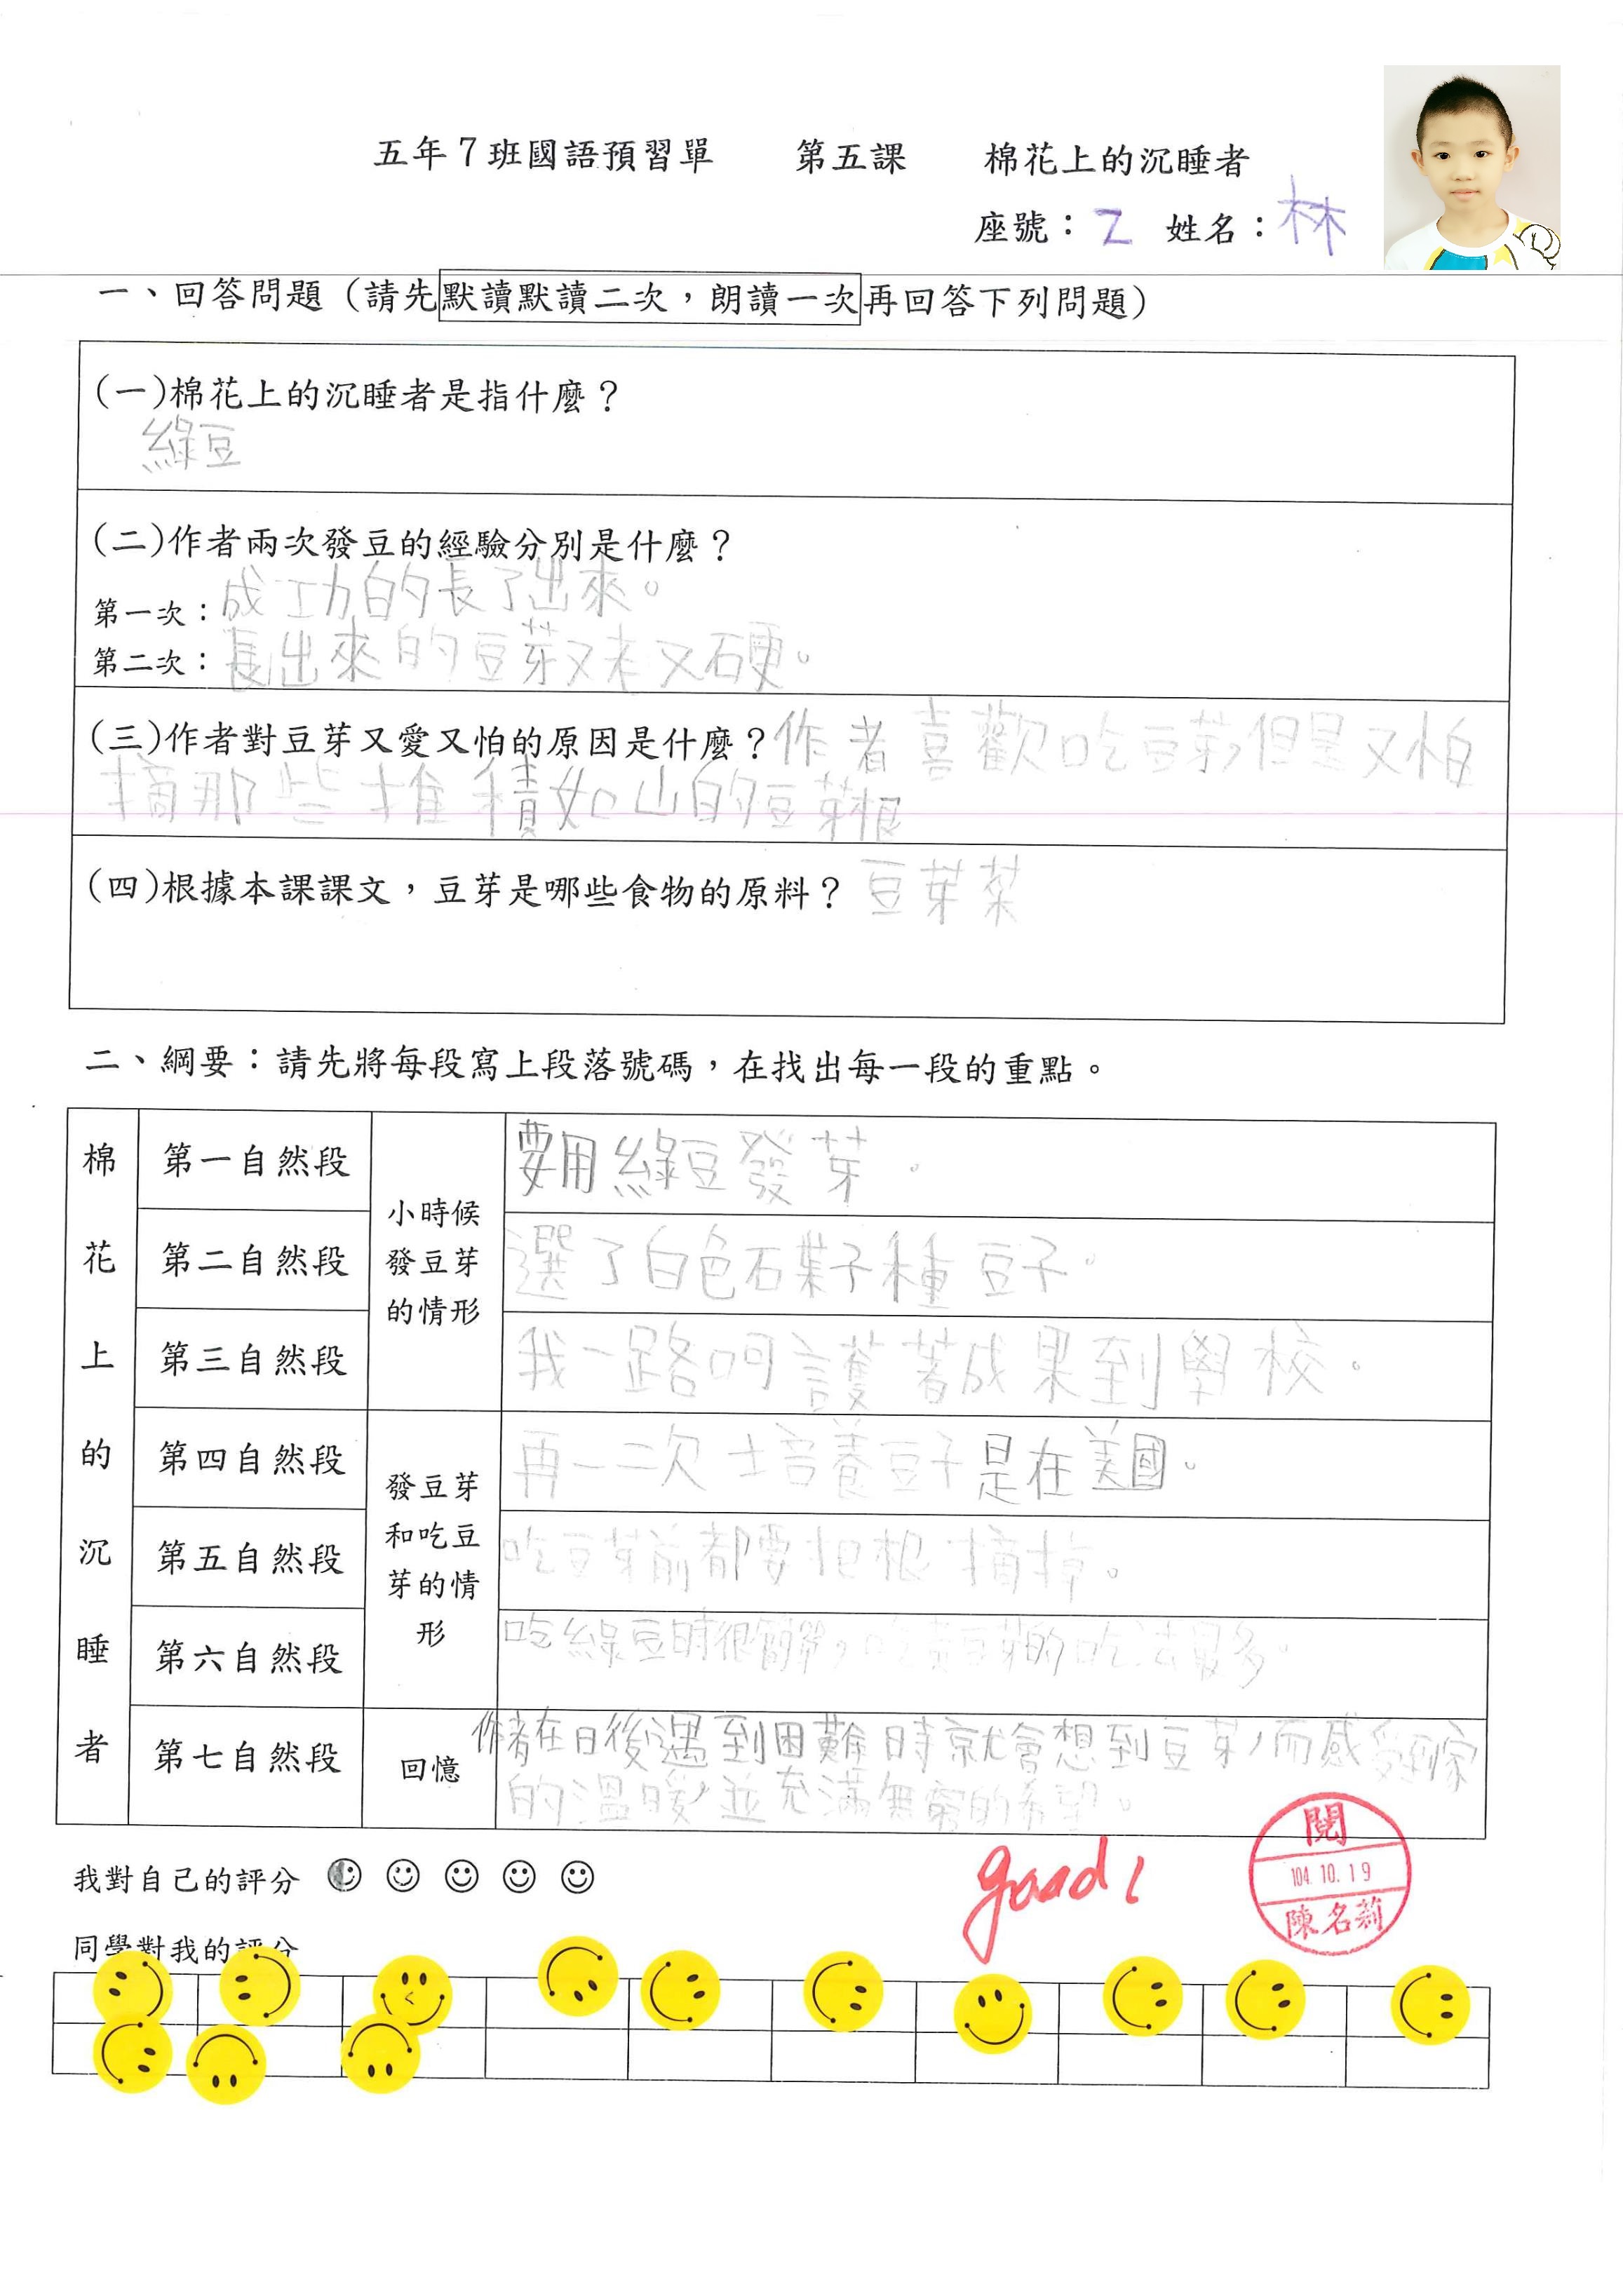 五年7班國語預習單 第五課 棉花上的沉睡者
座號：2 姓名：林
一、回答問題（請先默讀默讀二次，朗讀一次再回答下列問題）
(一)棉花上的沉睡者是指什麼？
綠豆
(二)作者兩次發豆的經驗分別是什麼？
第一次：成功的長了出來。
第二次：長出來的豆芽又老又硬。
(三)作者對豆芽又愛又怕的原因是什麼？作者喜歡吃豆芽，但是又怕
摘那些堆積如山的豆芽根
(四)根據本課課文，豆芽是哪些食物的原料？豆芽菜
二、綱要：請先將每段寫上段落號碼，在找出每一段的重點。
棉花上的沉睡者
小時候發豆芽的情形
第一自然段 要用綠豆發芽。
第二自然段 選了白色石葉子種豆子。
第三自然段 我一路呵護著成果到學校。
發豆芽和吃豆芽的情形
第四自然段 再一二次培養豆子是在美國。
第五自然段 吃豆芽前都要把根摘掉。
第六自然段 吃綠豆時很簡單，黃豆芽的吃法最多。
第七自然段 回憶 作者在日後遇到困難時就會想到豆芽，而感受到家
的溫暖，並充滿無窮的希望。
我對自己的評分
good!
閱
104.10.19
陳名莉
同學對我的評分